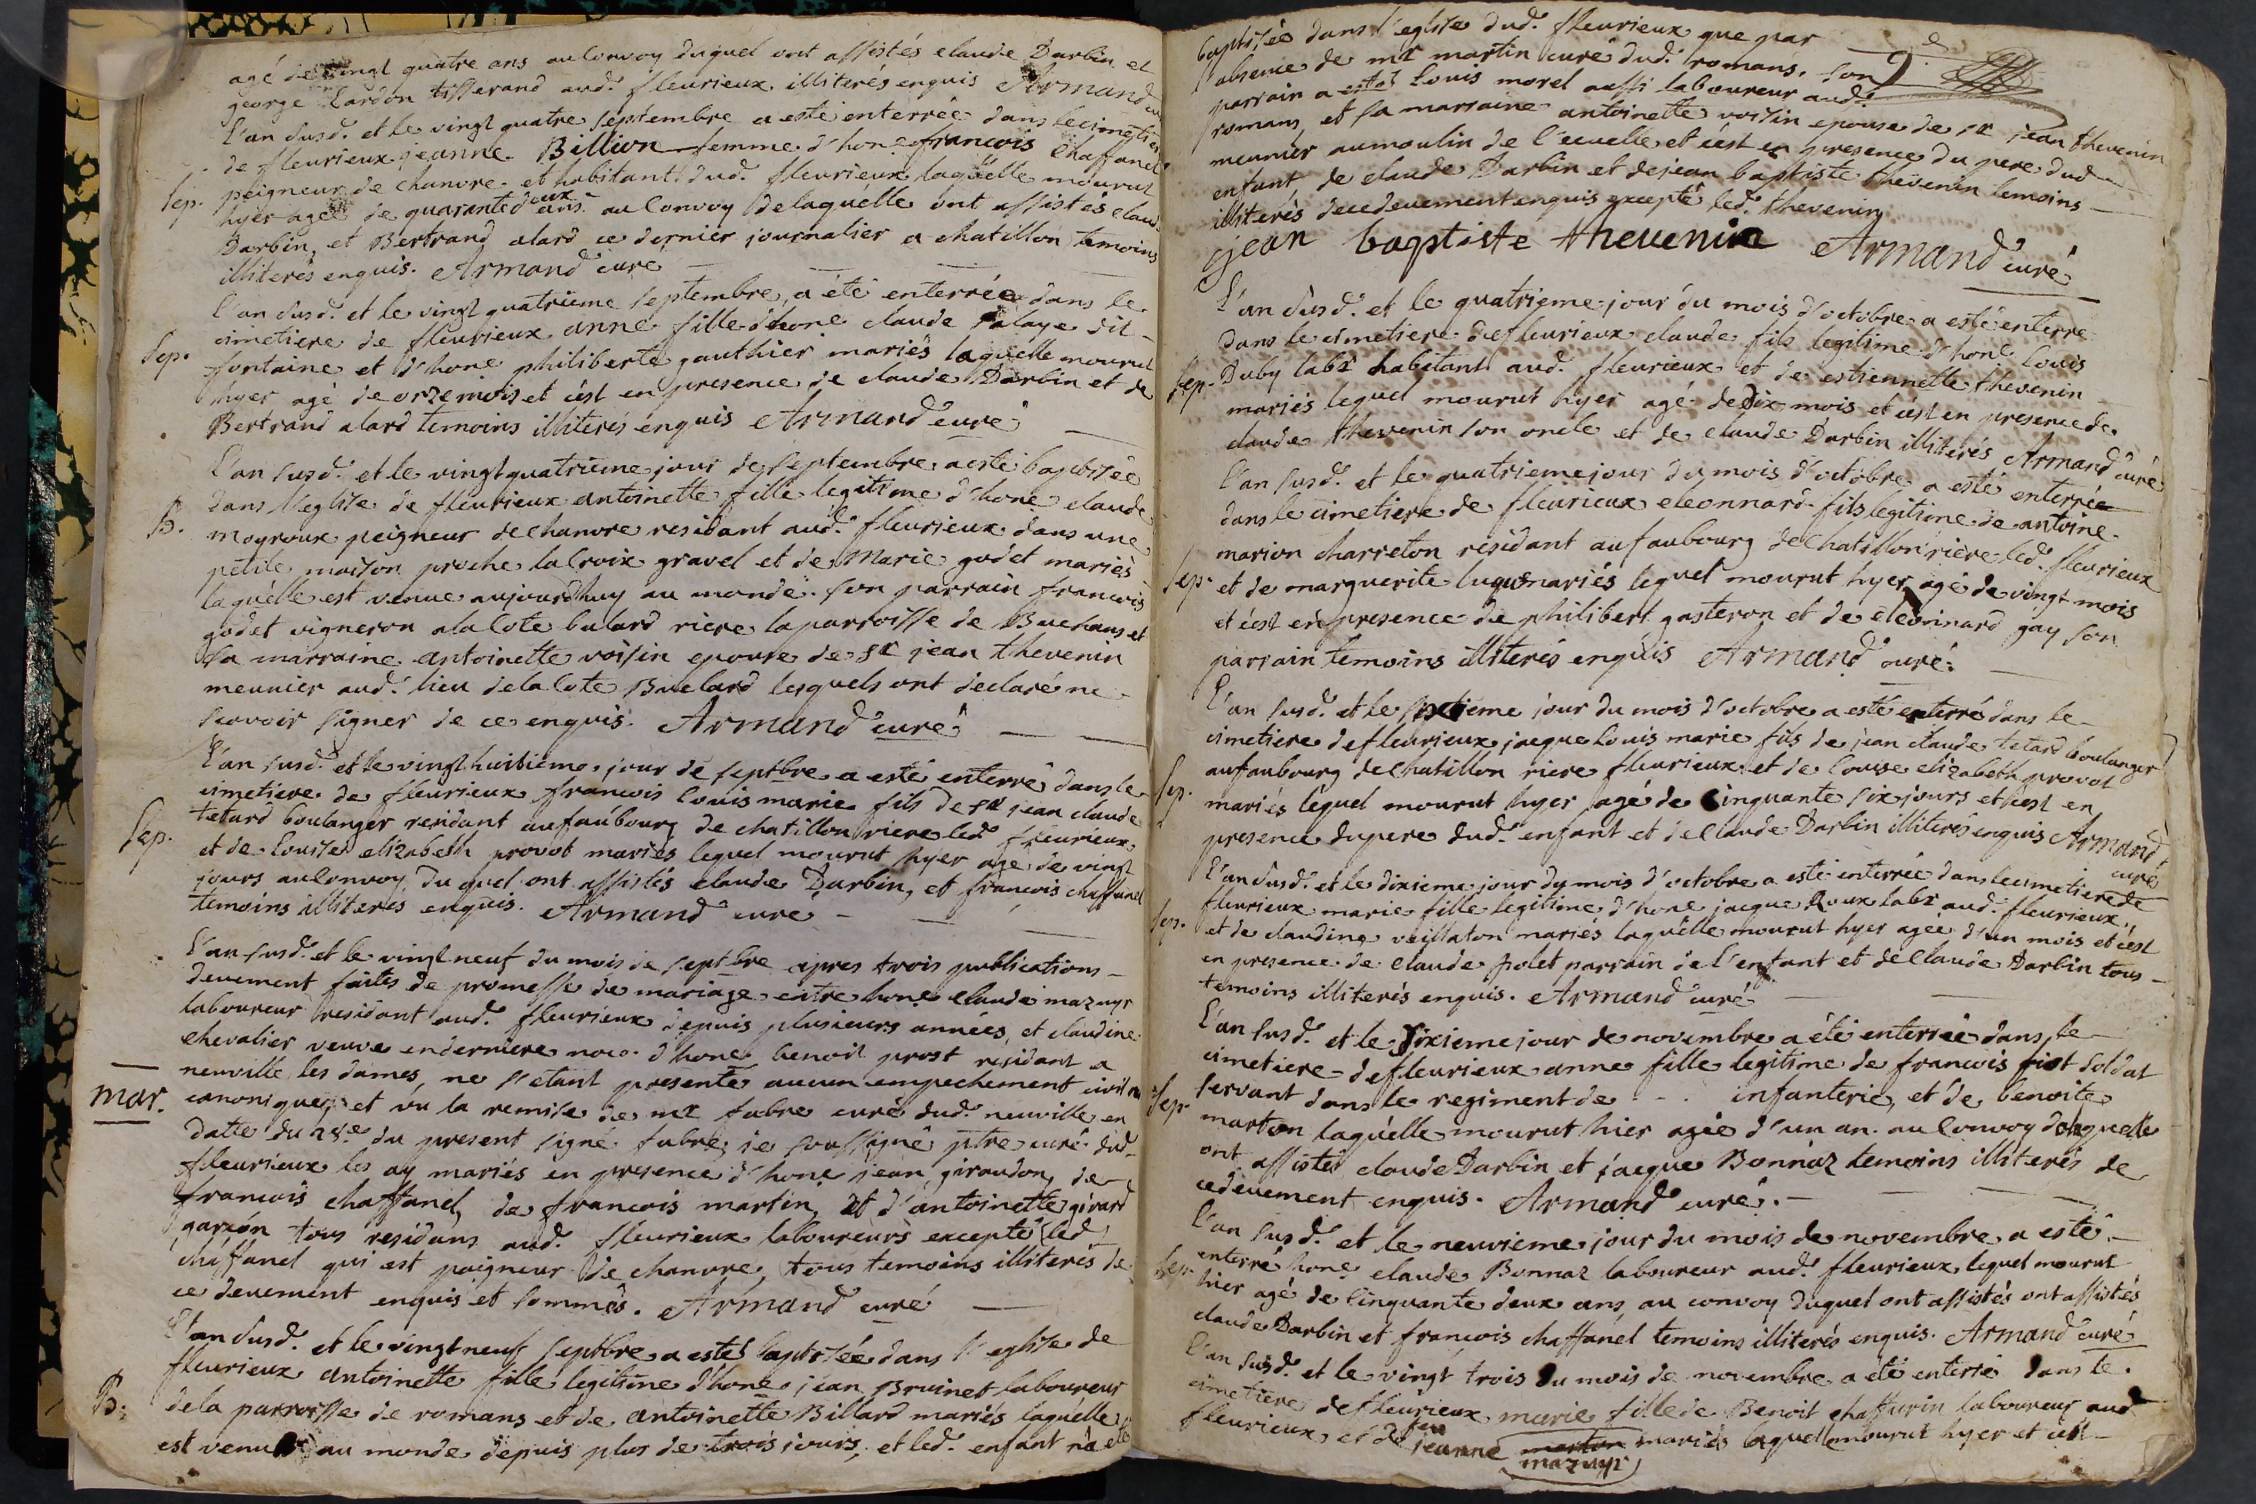 agé de vingt quatre ans au Convoy duquel ont assistés claude Darbin et
george Lardon tisserand aud. fleurieux. illiterés enquis Armand curé
L'an susd. et le vingt quatre septembre a esté enterrée dans le cimetiere
de fleurieux jeanne Billion femme d'hone francois chaffanel
Sep. peigneur de chanvre et habitant dud. fleurieux laquelle mourut
hyer agée de quarante deux ans au Convoy de laquelle ont assistés claude
Darbin, et Bertrand alard ce dernier journalier a chatillon temoins
illiterés enquis. Armand curé
L'an susd. et le vingt quatrieme septembre, a été enterrée dans le
cimetiere de fleurieux anne fille d'hone claude palaye dit
Sep. fontaine et d'hone philiberte gauthier mariés laquelle mourut
hyer agé de onze mois et c'est en presence de claude Darbin et de
Bertrand alard temoins illiterés enquis Armand curé
L'an susd. et le vingt quatrieme jour de septembre a esté baptisée
dans l'eglise de fleurieux antoinette fille legitime d'hone claude
B. moyroux peigneur de chanvre residant aud. fleurieux dans une
petite maison proche la Croix gravel et de Marie godet mariés
laquelle est venue aujourdhuy au monde. son parrain francois
godet vigneron a la Cote bulard riere la parroisse de Buchans et
sa marraine antoinette voisin epouse de sr jean thevenin
meunier aud. lieu de la Cote Buelard lesquels ont declaré ne
scavoir signer de ce enquis. Armand curé
L'an susd. et le vingt huitieme jour de septbre a esté enterré dans le
cimetiere de fleurieux francois louis marie fils de sr jean claude
Sep. tetard boulanger residant au faubourg de chatillon riere led. fleurieux
et de Louise elizabeth provot mariés lequel mourut hyer agé de vingt
jours au Convoy du quel ont assistés claude Darbin, et francois chaffanel
temoins illiterés enquis. Armand curé
L'an susd. et le vingt neuf du mois de septbre apres trois publications
deuement faites de promesse de mariage entre hone claude mazuyr
laboureur residant aud. fleurieux depuis plusieurs années, et claudine
chevalier veuve en derniere noce d'hone benoit prost residant a
neuville les dames, ne s'etant presenté aucun empechement civil ni
mar. canonique, et vu la remise de mr fabre curé dud. neuville en
datte du 28e du present signé fabre, je soussigné ptre curé dud.
fleurieux les ay mariés en presence d'hone jean giraudon, de
francois chaffanel, de francois martin, et d'antoinette girard
garcon tous residans aud. fleurieux laboureurs excepté led.
chaffanel qui est peigneur de chanvre, tous temoins illiterés de
ce deuement enquis et sommés. Armand curé
L'an susd. et le vingt neuf septbre a esté baptisée dans l'eglise de
fleurieux antoinette fille legitime d'hone jean Bruinet laboureur
B. de la parroisse de romans et de antoinette Billard mariés laquelle
est venue au monde depuis plus de trois jours, et led. enfant n'a eté
baptisée dans l'eglise dud. fleurieux que par
absence de mr martin curé dud. romans. son
parrain a esté louis morel aussi laboureur aud.
romans, et sa marraine antoinette voisin epouse de sr jean thevenin
meunier au moulin de l'ecuelle et c'est en presence du pere dud.
enfant de claude Darbin et de jean baptiste thevenin temoins
illiterés de ce deuement enquis excepté led. thevenin
jean baptiste thevenin Armand curé
L'an susd. et le quatrieme jour du mois d'octobre a esté enterré
dans le cimetiere de fleurieux claude fils legitime d'hone louis
Sep. Duby labr habitant aud. fleurieux et de estiennette thevenin
mariés lequel mourut hyer agé de Dix mois et c'est en presence de
claude thevenin son oncle et de claude Darbin illiterés Armand curé
L'an susd. et le quatrieme jour du mois d'octobre a esté enterrée
dans le cimetiere de fleurieux eleonnard fils legitime de antoine
marion charreton residant au faubourg de Chatillon riere led. fleurieux
Sep. et de marguerite luque mariés lequel mourut hyer agé de vingt mois
et c'est en presence de philibert gasteron et de eleonnard gay son
parrain temoins illiterés enquis Armand curé
L'an susd. et le septieme jour du mois d'octobre a esté enterré dans le
cimetiere de fleurieux jacque louis marie fils de jean claude tetard boulanger
Sep. au faubourg de Chatillon riere fleurieux et de louise elizabeth provot
mariés lequel mourut hyer agé de Cinquante six jours et c'est en
presence du pere dud. enfant et de Claude Darbin illiterés enquis Armand curé
L'an susd. et le dixieme jour du mois d'octobre a esté enterrée dans le cimetiere de
fleurieux marie fille legitime d'hone jacque Roux labr aud. fleurieux
Sep. et de claudine veillaton mariés laquelle mourut hyer agée d'un mois et c'est
en presence de claude polet parrain de l'enfant et de Claude Darbin tous
temoins illiterés enquis. Armand curé
L'an susd. et le sixieme jour de novembre a été enterrée dans le
cimetiere de fleurieux anne fille legitime de francois fiot soldat
Sep. servant dans le regiment de - . infanterie, et de benoite
marton laquelle mourut hier agée d'un an. au Convoy de laquelle
ont assistés claude Darbin et jacque Bonnaz temoins illiterés de
ce deuement enquis. Armand curé.
L'an susd. et le neuvieme jour du mois de novembre a esté
Sep. enterré hone claude Bonnaz laboureur aud. fleurieux lequel mourut
hier agé de Cinquante deux ans au convoy duquel ont assistés ont assistés
claude Darbin et francois chaffanel temoins illiterés enquis. Armand curé
L'an susd. et le vingt trois du mois de novembre a été enterré dans le
cimetiere de fleurieux marie fille de Benoit chaffurin laboureur aud.
fleurieux, et de feu jeanne marton mariés laquelle mourut hyer et c'est
mazuyr